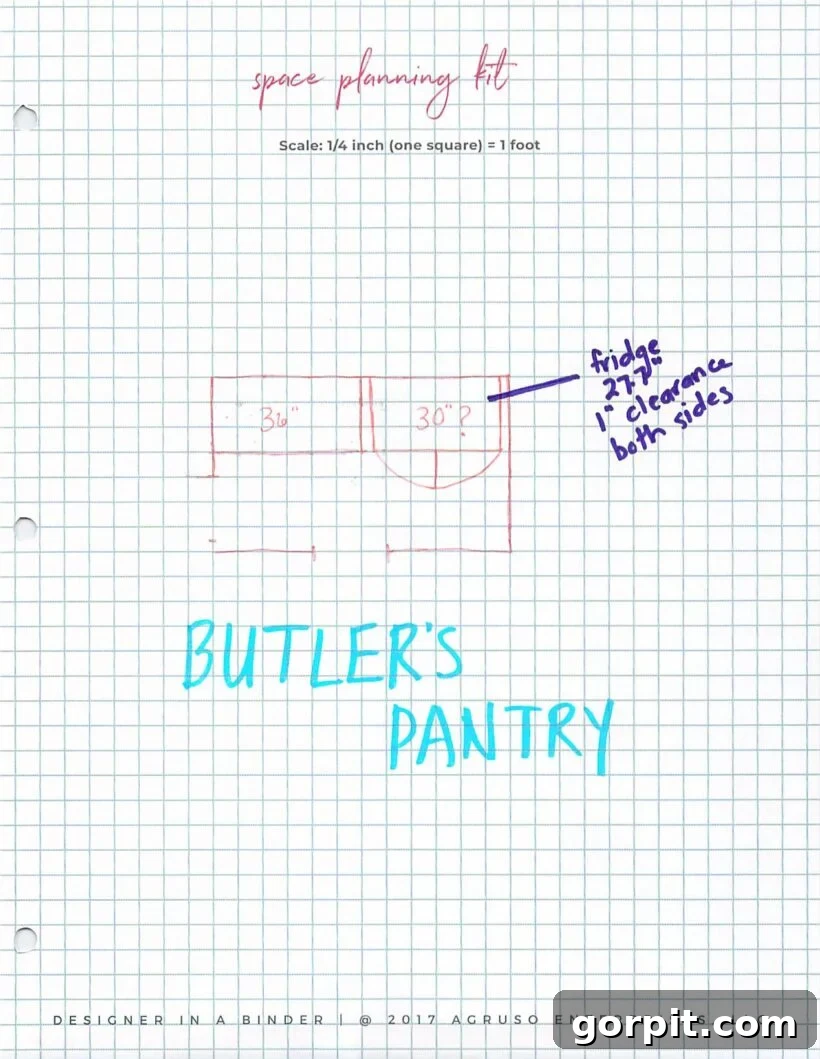 space planning kit
Scale: 1/4 inch (one square) = 1 foot
fridge
27.7"
1" clearance
both sides
36"
30"?
BUTLER'S
PANTRY
DESIGNER IN A BINDER | @ 2017 AGRUSO
gorpit.com